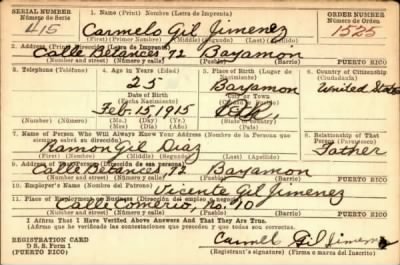 SERIAL NUMBER 1. Name (Print) Nombre (Letra de Imprenta) ORDER NUMBER
Número de Serie Número de Orden
415 Carmelo Gil Jimenez 1525
(First) (Primer Nombre) (Middle) (Segundo) (Last) (Apellido)
2. Address (Print) Dirección (Letra de Imprenta)
Calle Betances 72 Bayamon
Number and street (Número y calle) (Town) (Pueblo) (Barrio) PUERTO RICO
3. Telephone (Teléfono) 4. Age in Years (Edad) 5. Place of Birth (Lugar de Nacimiento) 6. Country of Citizenship (Ciudadanía)
25 Bayamon United States
Date of Birth (Town) (Pueblo)
(Fecha Nacimiento)
Feb. 15, 1915 P.R.
(Number) (Número) (Mo.) (Day) (Yr.) (State or country)
(Mes) (Día) (Año) (Estado o País)
7. Name of Person Who Will Always Know Your Address (Nombre de la Persona que siempre sabrá su dirección) 8. Relationship of That Person (Parentesco)
Ramon Gil Diaz Father
(First) (Nombre) (Middle) (Segundo) (Last) (Apellido)
9. Address of That Person (Dirección de esa persona)
Calle Betances 72 Bayamon
Number and street (Número y calle) (Town) (Pueblo) (Barrio) PUERTO RICO
10. Employer's Name (Nombre del Patrono)
Vicente Gil Jimenez
11. Place of Employment or Business (Dirección del empleo o negocio)
Calle Comerio, no. 10
Number and street (Número y calle) (Town) (Pueblo) (Barrio) PUERTO RICO
I Affirm That I Have Verified Above Answers And That They Are True.
Afirmo que he verificado las contestaciones que preceden y que todas son correctas.
REGISTRATION CARD Carmel Gil Jimenez
D. S. S. Form 1 Registrant's signature) (Firma o marca del Inscrito)
(PUERTO RICO)